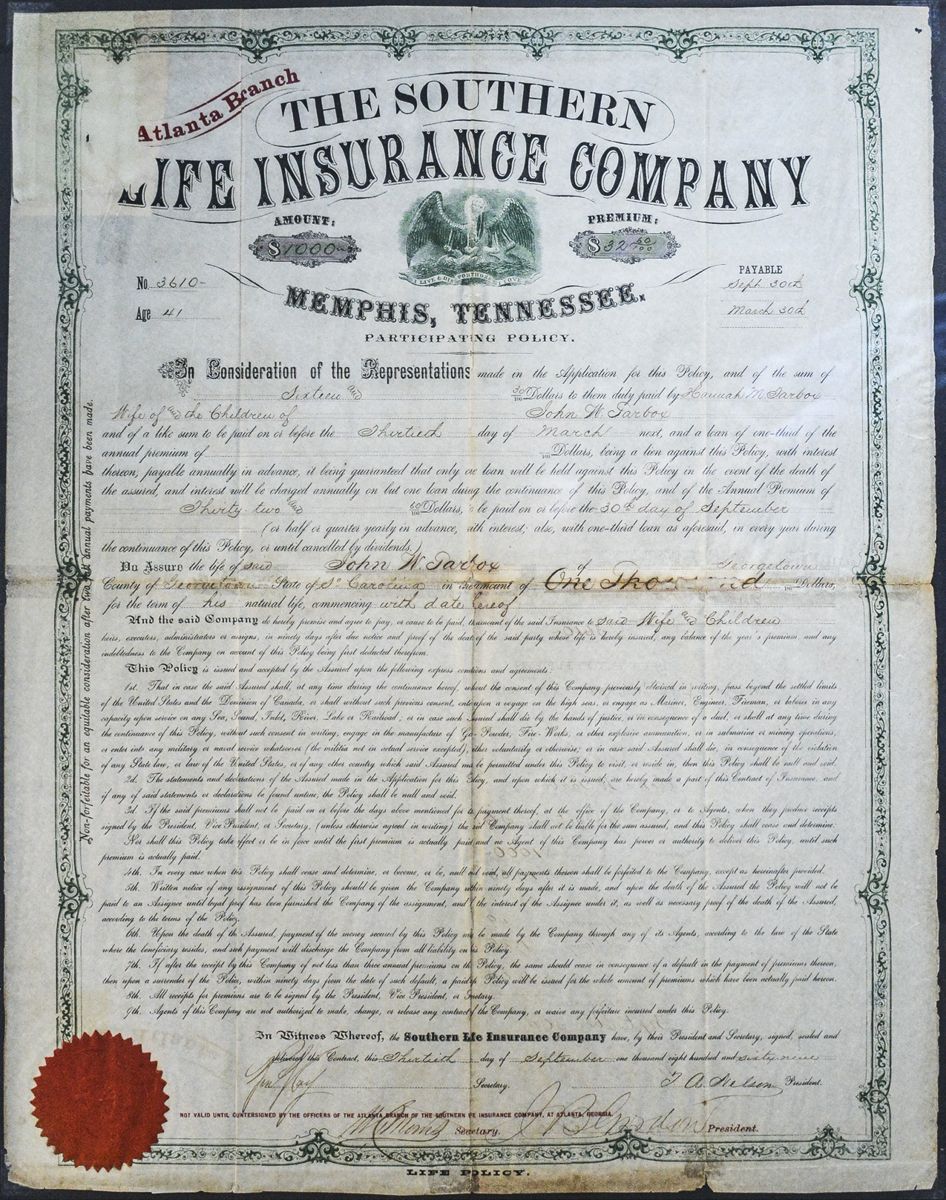 Atlanta Branch
THE SOUTHERN
LIFE INSURANCE COMPANY
AMOUNT:
$1000
PREMIUM:
$32 60/100
No 3610
Age 41
PAYABLE
Sept. 30th
March 30th
MEMPHIS, TENNESSEE.
PARTICIPATING POLICY.
In Consideration of the Representations made in the Application for this Policy, and of the sum of
Sixteen & 30/100 Dollars to them duly paid by Hannah M Tarbox
Wife of & the Children of John W. Tarbox
and of a like sum to be paid on or before the Thirtieth day of March next, and a loan of one-third of the
annual premium of Dollars, being a lien against this Policy, with interest
thereon, payable annually in advance, it being guaranteed that only one loan will be held against this Policy in the event of the death of
the assured, and interest will be charged annually on but one loan during the continuance of this Policy, and of the Annual Premium of
Thirty two and 60/100 Dollars, to be paid on or before the 30th day of September
(or half or quarter yearly in advance, with interest; also, with one-third loan as aforesaid, in every year during
the continuance of this Policy, or until cancelled by dividends.)
Do Assure the life of said John W. Tarbox of Georgetown
County of Georgetown State of So Carolina in the amount of One Thousand Dollars,
for the term of his natural life, commencing with date hereof
And the said Company do hereby promise and agree to pay, or cause to be paid, the amount of the said Insurance to said Wife & Children
heirs, executors, administrators or assigns, in ninety days after due notice and proof of the death of the said party whose life is hereby insured, any balance of the year's premium, and any
indebtedness to the Company on account of this Policy being first deducted therefrom.
This Policy is issued and accepted by the Assured upon the following express conditions and agreements:
1st. That in case the said Assured shall, at any time during the continuance hereof, without the consent of this Company previously obtained in writing, pass beyond the settled limits
of the United States and the Dominion of Canada, or shall without such previous consent, enter upon a voyage on the high seas, or engage as Mariner, Engineer, Fireman, or laborer in any
capacity upon service on any Sea, Sound, Inlet, River, Lake or Railroad; or in case such Assured shall die by the hands of justice, or in consequence of a duel, or shall at any time during
the continuance of this Policy, without such consent in writing, engage in the manufacture of Gun Powder, Fire-Works, or other explosive ammunition, or in submarine or mining operations,
or enter into any military or naval service whatsoever (the militia not in actual service excepted), either voluntarily or otherwise; or in case said Assured shall die, in consequence of the violation
of any State law, or law of the United States, or of any other country which said Assured may be permitted under this Policy to visit, or reside in, then this Policy shall be null and void.
2d. The statements and declarations of the Assured made in the Application for this Policy, and upon which it is issued, are hereby made a part of this Contract of Insurance, and
if any of said statements or declarations be found untrue, the Policy shall be null and void.
3d. If the said premiums shall not be paid on or before the days above mentioned for the payment thereof, at the office of the Company, or to Agents, when they produce receipts
signed by the President, Vice President, or Secretary, (unless otherwise agreed in writing) the said Company shall not be liable for the sum assured, and this Policy shall cease and determine.
Nor shall this Policy take effect or be in force until the first premium is actually paid and no Agent of this Company has power or authority to deliver this Policy, until such
premium is actually paid.
4th. In every case when this Policy shall cease and determine, or become, or be, null and void, all payments thereon shall be forfeited to the Company, except as hereinafter provided.
5th. Written notice of any assignment of this Policy should be given the Company within ninety days after it is made, and upon the death of the Assured the Policy will not be
paid to an Assignee until legal proof has been furnished the Company of the assignment, and of the interest of the Assignee under it, as well as necessary proof of the death of the Assured,
according to the terms of the Policy.
6th. Upon the death of the Assured, payment of the money secured by this Policy may be made by the Company through any of its Agents, according to the law of the State
where the beneficiary resides, and such payment will discharge the Company from all liability on its Policy.
7th. If after the receipt by this Company of not less than three annual premiums on this Policy, the same should cease in consequence of a default in the payment of premiums thereon,
then upon a surrender of the Policy, within ninety days from the date of such default, a paid up Policy will be issued for the whole amount of premiums which have been actually paid hereon.
8th. All receipts for premiums are to be signed by the President, Vice President, or Secretary.
9th. Agents of this Company are not authorized to make, change, or release any contract of the Company, or waive any forfeiture incurred under this Policy.
In Witness Whereof, the Southern Life Insurance Company have, by their President and Secretary, signed, sealed and
delivered this Contract, this Thirtieth day of September one thousand eight hundred and sixty nine
Secretary. T. A. Nelson President.
NOT VALID UNTIL COUNTERSIGNED BY THE OFFICERS OF THE ATLANTA BRANCH OF THE SOUTHERN LIFE INSURANCE COMPANY, AT ATLANTA, GEORGIA.
Secretary. J B Gordon President.
LIFE POLICY.
Non-forfeitable for an equitable consideration after two full annual payments have been made.